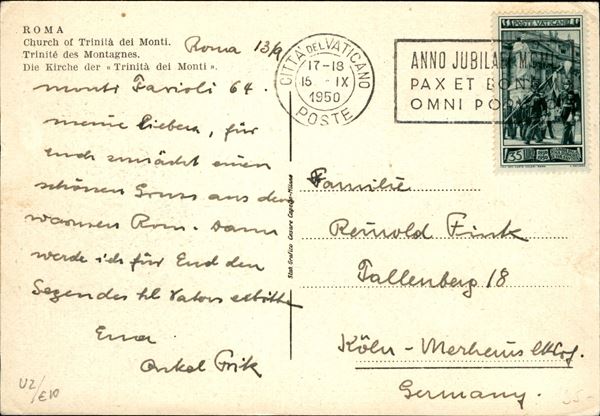 ROMA
Church of Trinità dei Monti.
Trinité des Montagnes.
Die Kirche der « Trinità dei Monti ».
Roma 13/9
monti Parioli 64.
meine Lieben, für
Euch zunächst einen
schönen Gruss aus dem
warmen Rom. Dann
werde ich für Euch den
Segen des hl Vaters erbitten
Euer
Onkel Fritz
U2/
€10
Stab. Grafico Cesare Capello - Milano
CITTA' DEL VATICANO
17-18
15 - IX
1950
POSTE
ANNO JUBILAEI
PAX ET BONUM
OMNI
POSTE VATICANE
35
Familie
Reinold Fink
Tallenberg 18
Köln - Merheim
Germany.